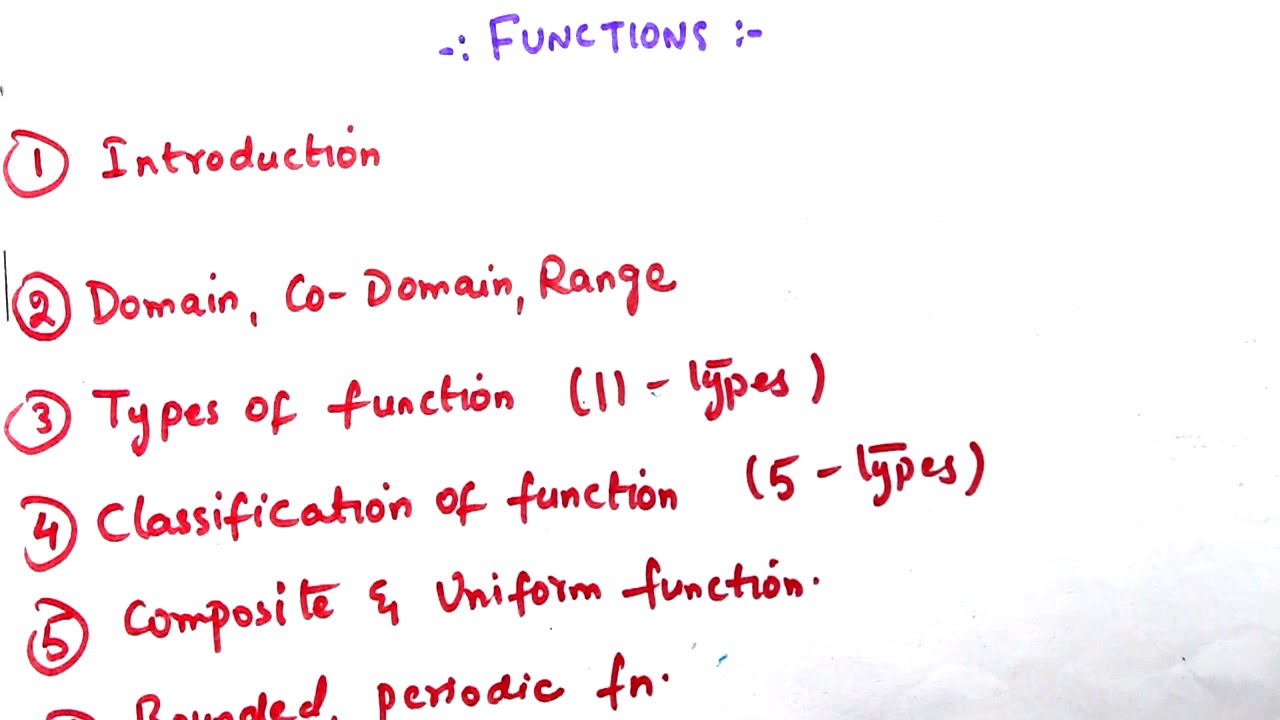 -: FUNCTIONS :-
① Introduction
② Domain, Co-Domain, Range
③ Types of function (11 - types)
④ Classification of function (5 - types)
⑤ Composite & Uniform function.
Bounded, periodic fn.